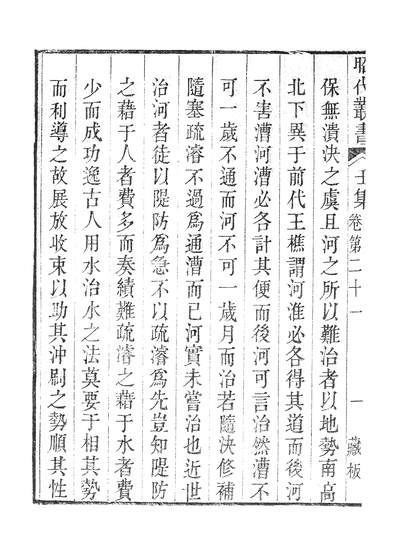 昭代叢書
壬集卷第二十一
一
藏板
保無潰決之虞且河之所以難治者以地勢南高
北下異于前代王樵謂河淮必各得其道而後河
不害漕河漕必各計其便而後河可言治然漕不
可一歲不通而河不可一歲月而治若隨決修補
隨塞疏濬不過爲通漕而已河實未嘗治也近世
治河者徒以隄防爲急不以疏濬爲先豈知隄防
之藉于人者費多而奏績難疏濬之藉于水者費
少而成功逸古人用水治水之法莫要于相其勢
而利導之故展放收束以助其沖刷之勢順其性